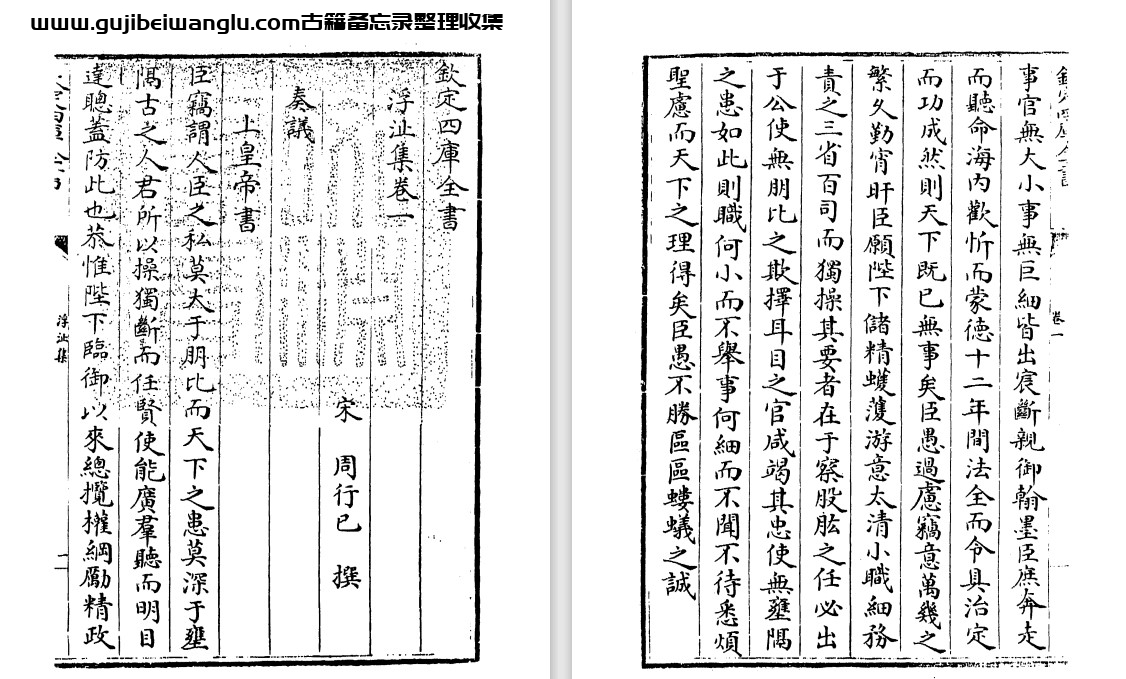 www.gujibeiwanglu.com古籍备忘录整理收集
欽定四庫全書
浮沚集卷一
宋 周行已 撰
奏議
上皇帝書
臣竊謂人臣之私莫大于朋比而天下之患莫深于壅
隔古之人君所以操獨斷而任賢使能廣羣聽而明目
達聰蓋防此也恭惟陛下臨御以來總攬權綱勵精政
浮沚集
一
卷一
事官無大小事無巨細皆出宸斷親御翰墨臣庶奔走
而聽命海内歡忻而蒙德十二年間法全而令具治定
而功成然則天下既已無事矣臣愚過慮竊意萬幾之
繁久勤宵旰臣願陛下儲精蠖濩游意太清小職細務
責之三省百司而獨操其要者在于察股肱之任必出
于公使無朋比之欺擇耳目之官咸竭其忠使無壅隔
之患如此則職何小而不舉事何細而不聞不待悉煩
聖慮而天下之理得矣臣愚不勝區區螻蟻之誠